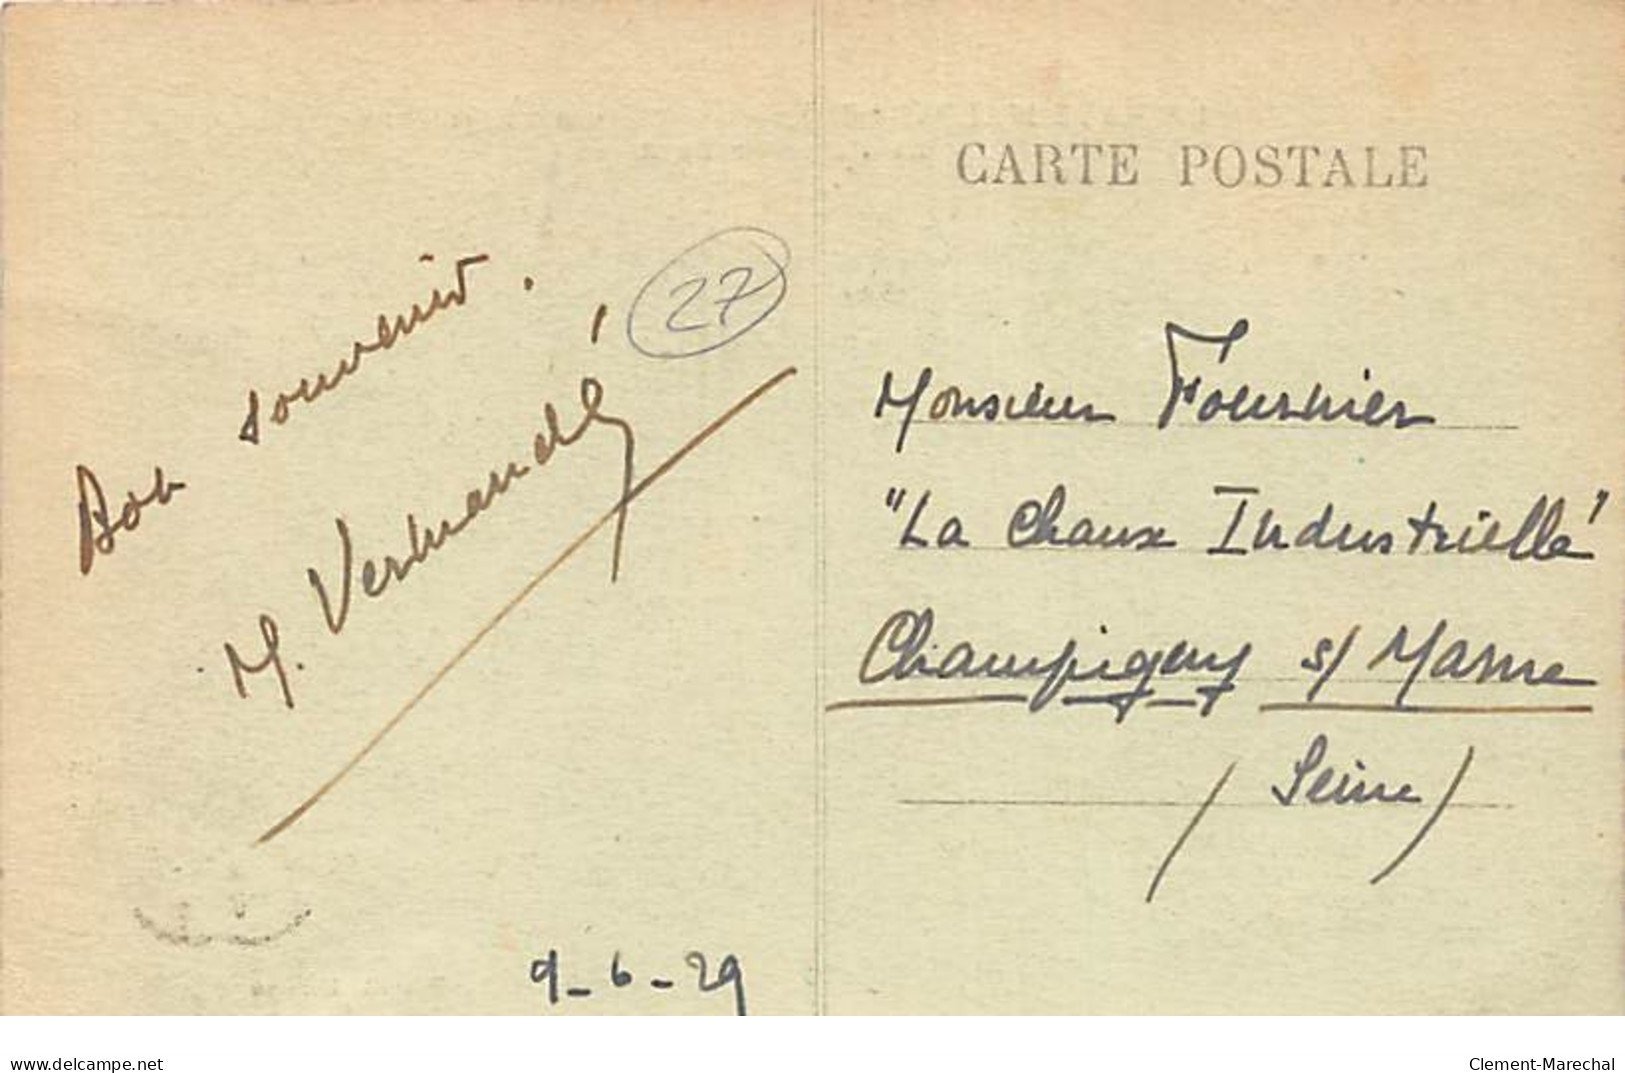 CARTE POSTALE
Bon souvenir.
27
M. Vernandé
Monsieur Fournier
"La Chaux Industrielle"
Champigny s/ Marne
(Seine)
9-6-29
delcampe.net
Clement-Marechal